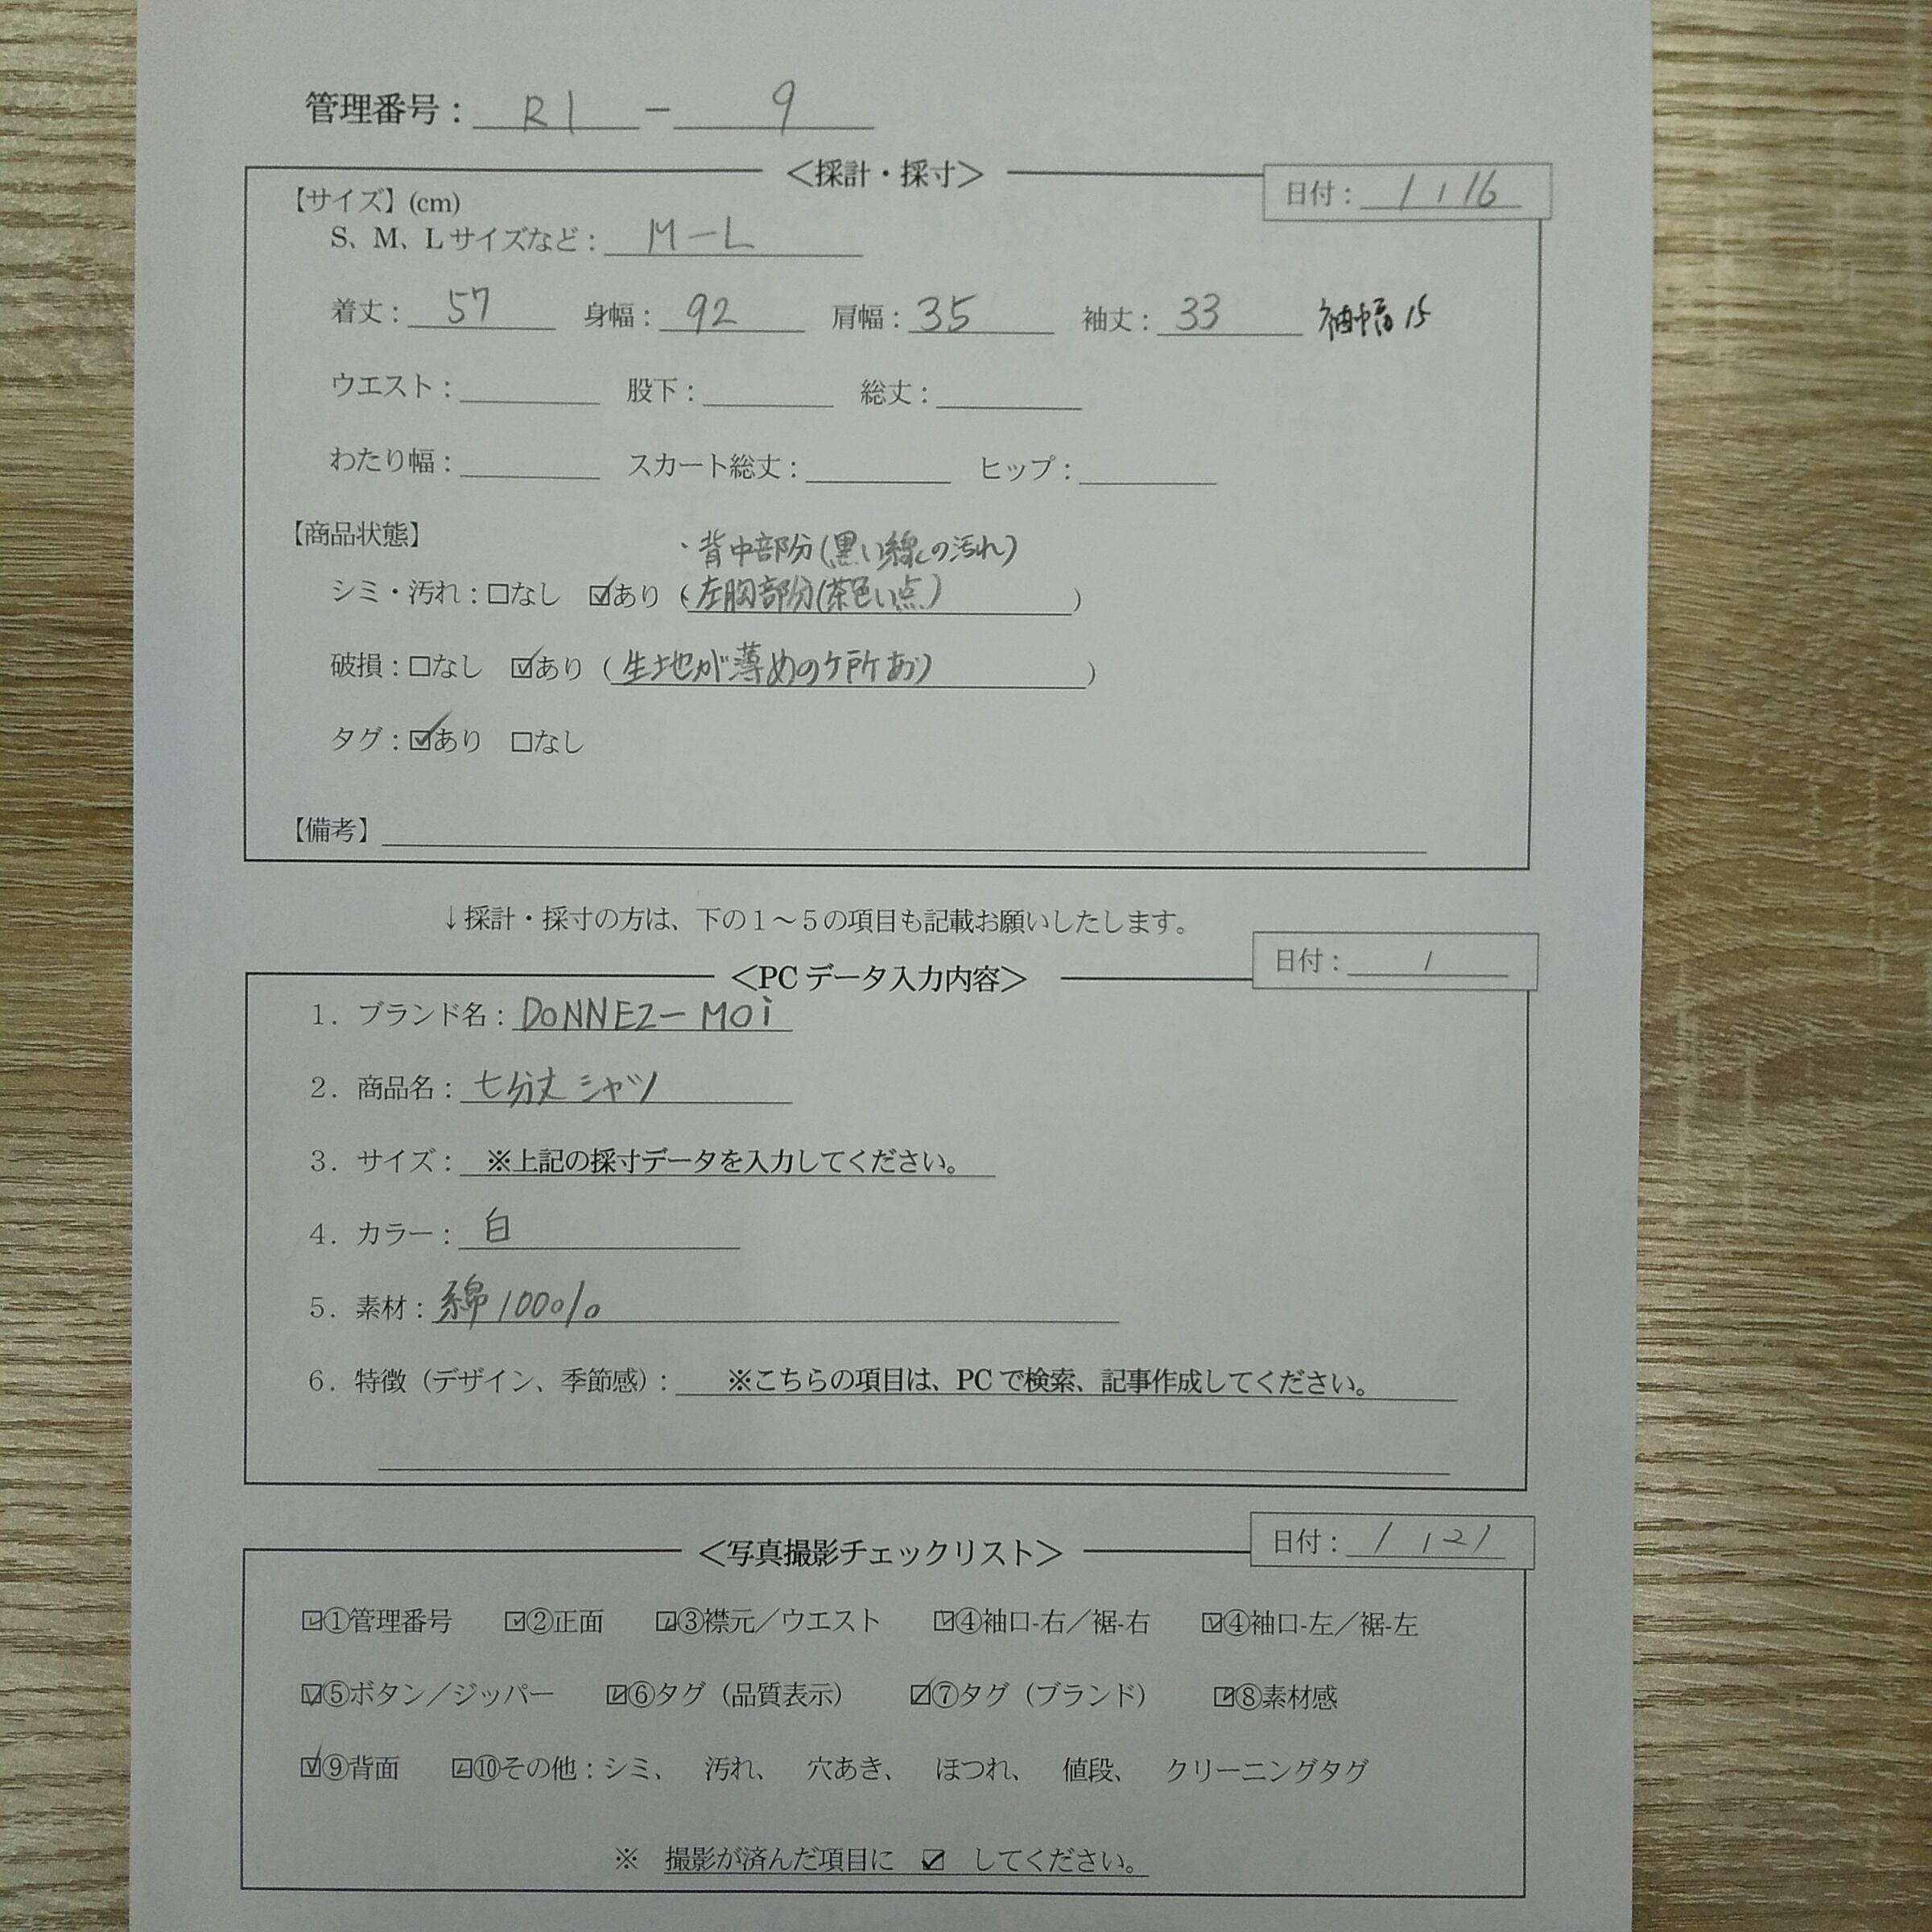 管理番号： R1 － 9
＜採計・採寸＞
日付： 1 / 16
【サイズ】(cm)
S、M、Lサイズなど： M－L
着丈： 57 身幅： 92 肩幅： 35 袖丈： 33 袖幅 15
ウエスト： 股下： 総丈：
わたり幅： スカート総丈： ヒップ：
【商品状態】
・背中部分(黒い線の汚れ)
シミ・汚れ：□なし ☑あり（・左胸部分(茶色い点) ）
破損：□なし ☑あり（生地が薄めのケ所あり ）
タグ：☑あり □なし
【備考】
↓採計・採寸の方は、下の１～５の項目も記載お願いしたします。
＜PCデータ入力内容＞
日付： /
１．ブランド名： DONNEZ－MOi
２．商品名： 七分丈シャツ
３．サイズ： ※上記の採寸データを入力してください。
４．カラー： 白
５．素材： 綿100%
６．特徴（デザイン、季節感）： ※こちらの項目は、PCで検索、記事作成してください。
＜写真撮影チェックリスト＞
日付： 1 / 21
☑①管理番号 ☑②正面 ☑③襟元／ウエスト ☑④袖口-右／裾-右 ☑④袖口-左／裾-左
☑⑤ボタン／ジッパー ☑⑥タグ（品質表示） ☑⑦タグ（ブランド） ☑⑧素材感
☑⑨背面 ☑⑩その他：シミ、 汚れ、 穴あき、 ほつれ、 値段、 クリーニングタグ
※ 撮影が済んだ項目に ☑ してください。